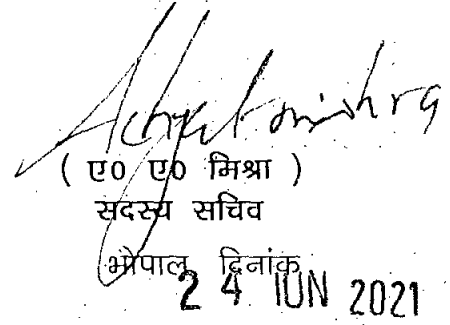 ( ए0 ए0 मिश्रा )
सदस्य सचिव
भोपाल, दिनांक
2 4 JUN 2021